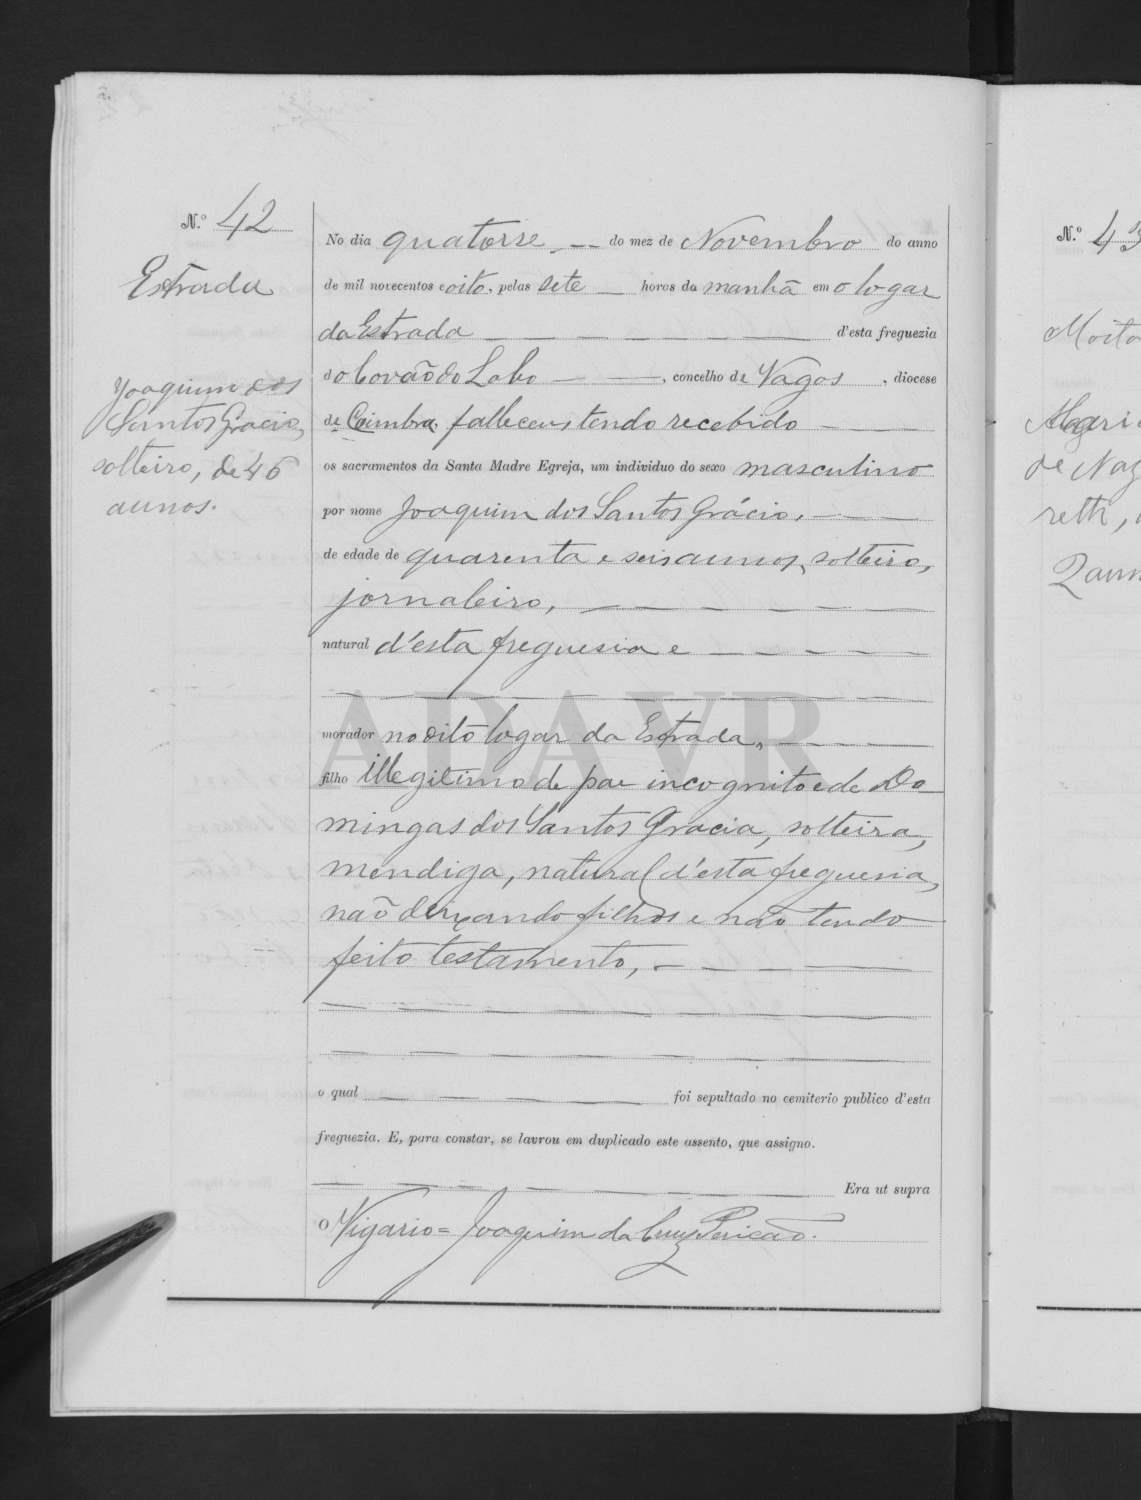 N.º 42
Estrada
Joaquim dos
Santos Gracio,
solteiro, de 46
annos.
No dia quatorse — do mez de Novembro do anno
de mil novecentos e oito, pelas sete — horas da manhã em o logar
da Estrada — — — — — — d'esta freguezia
do Covão do Lobo — —, concelho de Vagos, diocese
de Coimbra, falleceu, tendo recebido — —
os sacramentos da Santa Madre Egreja, um individuo do sexo masculino
por nome Joaquim dos Santos Grácio, — —
de edade de quarenta e seis annos, solteiro,
jornaleiro, — — — — — —
natural d'esta freguesia e — — — — —
ADAVR
morador no dito logar da Estrada, — — — —
filho illegitimo de pae incognito e de Do-
mingas dos Santos Gracia, solteira,
mendiga, natural d'esta freguesia,
não deixando filhos e não tendo
feito testamento, — — — —
o qual — — — — — foi sepultado no cemiterio publico d'esta
freguezia. E, para constar, se lavrou em duplicado este assento, que assigno.
— — — — — — — Era ut supra
O Vigario = Joaquim da Cruz Pericão.
N.º 43
Moita
Mari
de Naz
reth,
2 ann